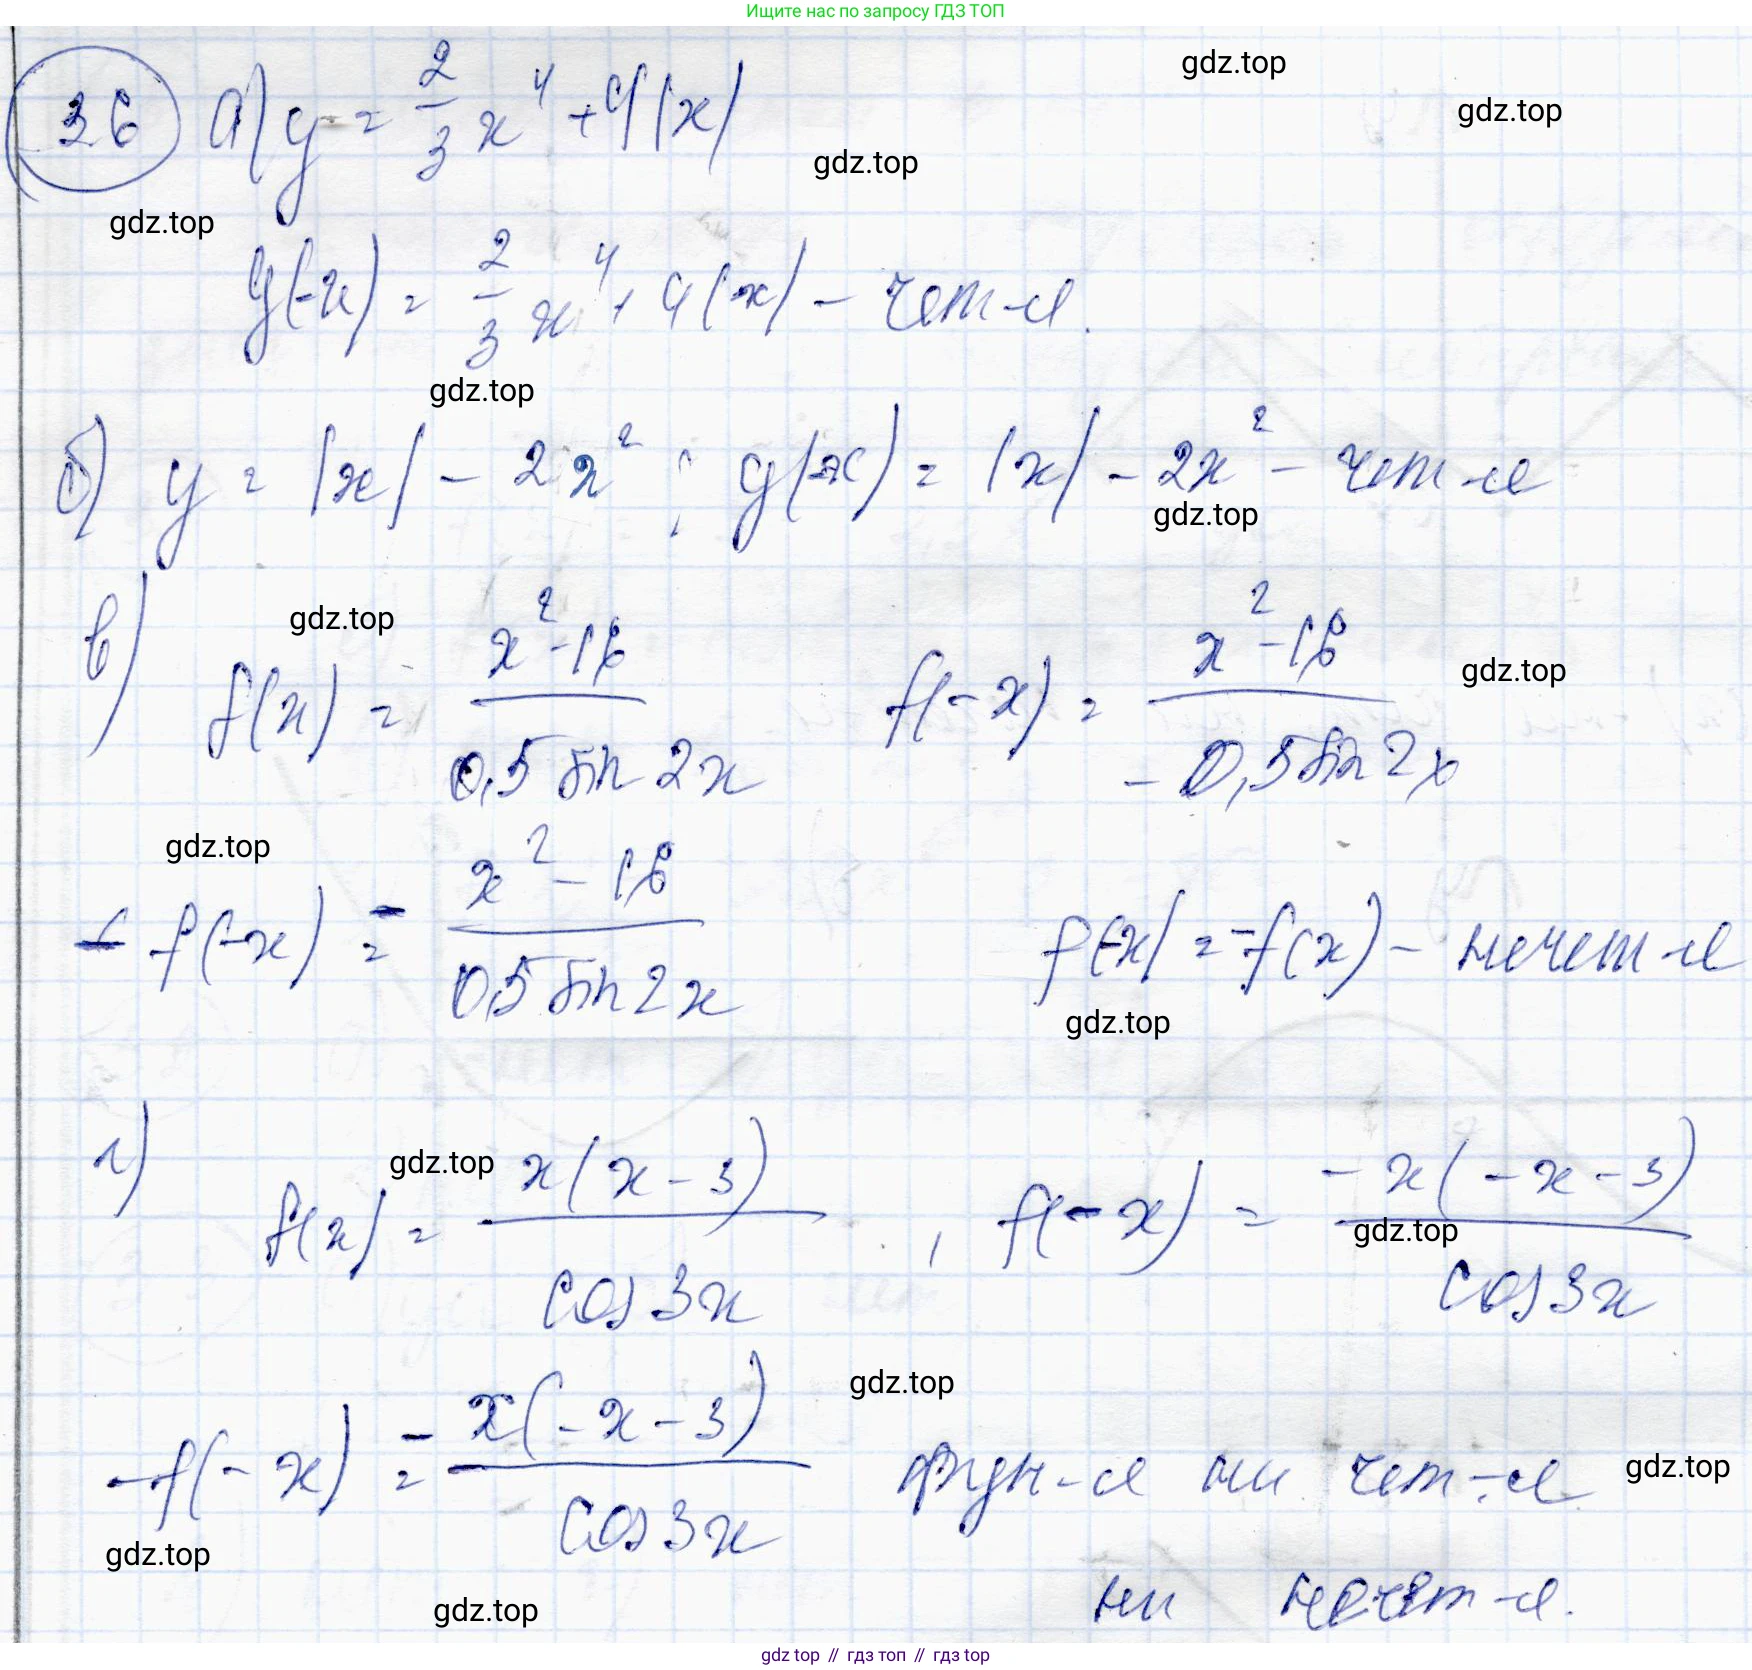 Ищите нас по запросу ГДЗ ТОП
36 а) y = 2/3 x^4 + 4|x|
gdz.top
gdz.top
gdz.top
gdz.top
y(-x) = 2/3 x^4 + 4|x| - чет-я.
gdz.top
б) y = |x| - 2x^2 ; y(-x) = |x| - 2x^2 - чет-я
gdz.top
в) f(x) = (x^2-16)/(0,5 sin 2x) f(-x) = (x^2-16)/(-0,5 sin 2x)
gdz.top
gdz.top
gdz.top
f(-x) = - (x^2 - 16)/(0,5 sin 2x) f(-x) = -f(x) - нечет-я
gdz.top
г) f(x) = x(x-3)/cos 3x , f(-x) = -x(-x-3)/cos 3x
gdz.top
gdz.top
-f(-x) = - x(-x-3)/cos 3x функ-я ни чет-я
gdz.top
gdz.top
gdz.top
gdz.top
ни нечет-я.
gdz top // гдз топ // гдз top